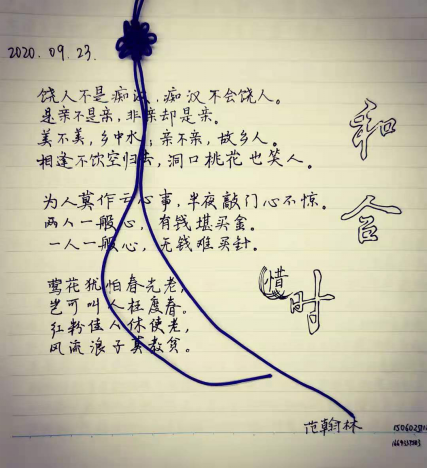 2020.09.23.
饶人不是痴汉，痴汉不会饶人。
是亲不是亲，非亲却是亲。
美不美，乡中水；亲不亲，故乡人。
相逢不饮空归去，洞口桃花也笑人。
为人莫作亏心事，半夜敲门心不惊。
两人一般心，有钱堪买金。
一人一般心，无钱难买针。
莺花犹怕春光老，
岂可叫人枉度春。
红粉佳人休使老，
风流浪子莫教贫。
和
合
惜
时
范翰林